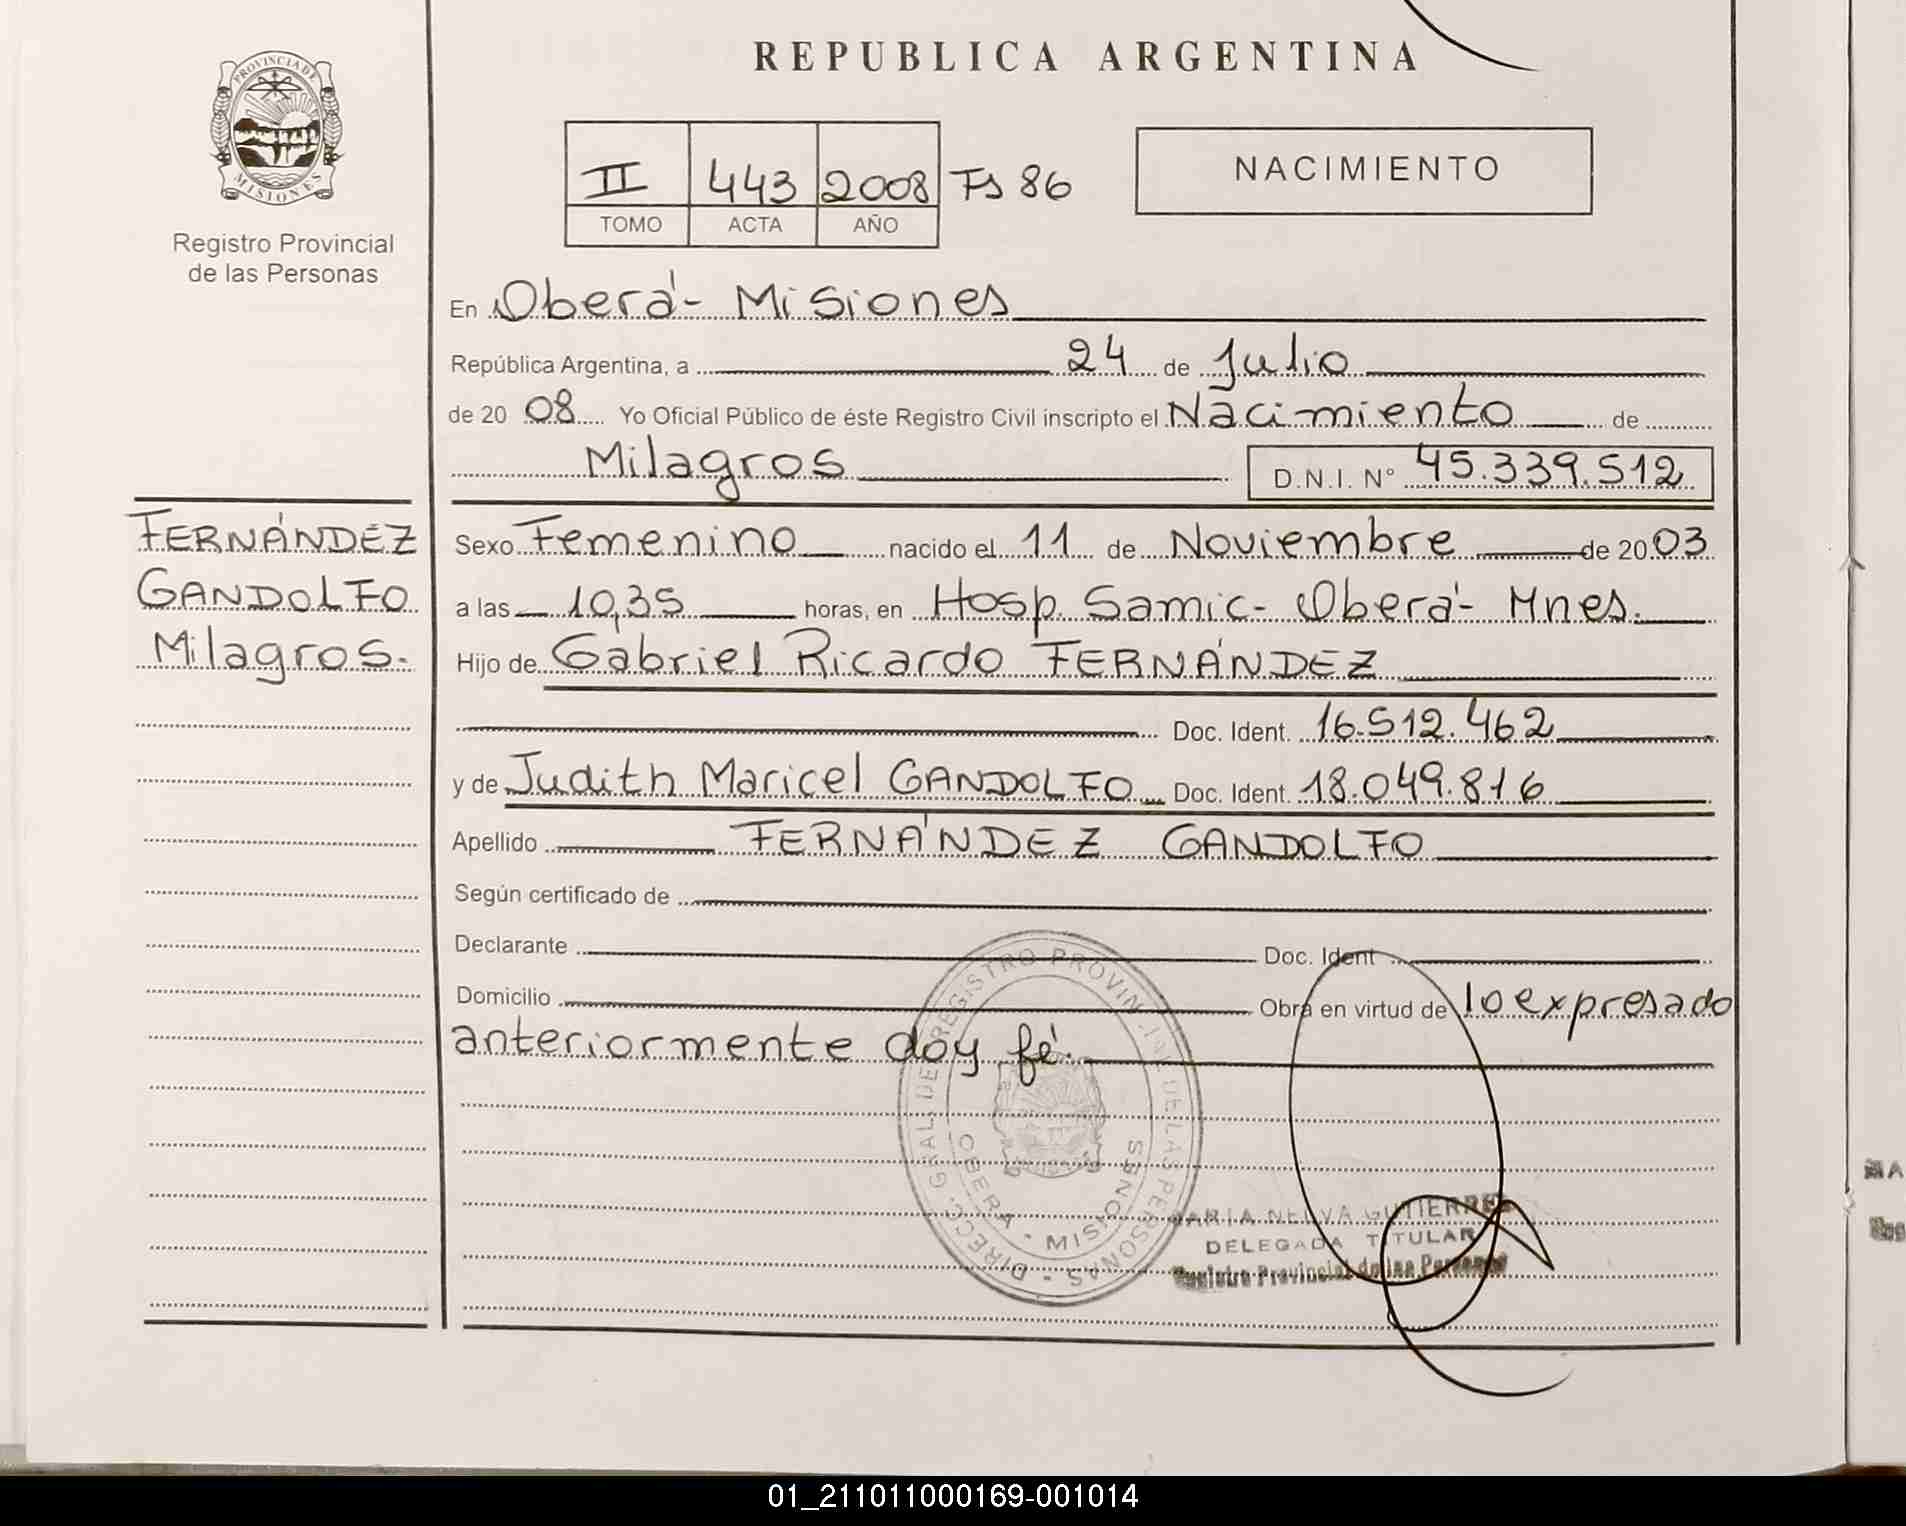 REPUBLICA ARGENTINA
PROVINCIA DE
MISIONES
Registro Provincial
de las Personas
II 443 2008 Fs 86
TOMO ACTA AÑO
NACIMIENTO
En Oberá - Misiones
República Argentina, a 24 de Julio
de 20 08 Yo Oficial Público de éste Registro Civil inscripto el Nacimiento de
Milagros D.N.I. Nº 45.339.512
FERNÁNDEZ
GANDOLFO
Milagros.
Sexo Femenino nacido el 11 de Noviembre de 20 03
a las 10,35 horas, en Hosp. Samic - Oberá - Mnes.
Hijo de Gabriel Ricardo FERNÁNDEZ
Doc. Ident. 16.512.462
y de Judith Maricel GANDOLFO Doc. Ident. 18.049.816
Apellido FERNÁNDEZ GANDOLFO
Según certificado de
Declarante Doc. Ident
Domicilio Obra en virtud de lo expresado
anteriormente doy fé.
DIRECC. GRAL. DE REGISTRO PROVINCIAL DE LAS PERSONAS -
OBERA - MISIONES
MARIA NELVA GUTIERREZ
DELEGADA TITULAR
Registro Provincial de las Personas
01_211011000169-001014